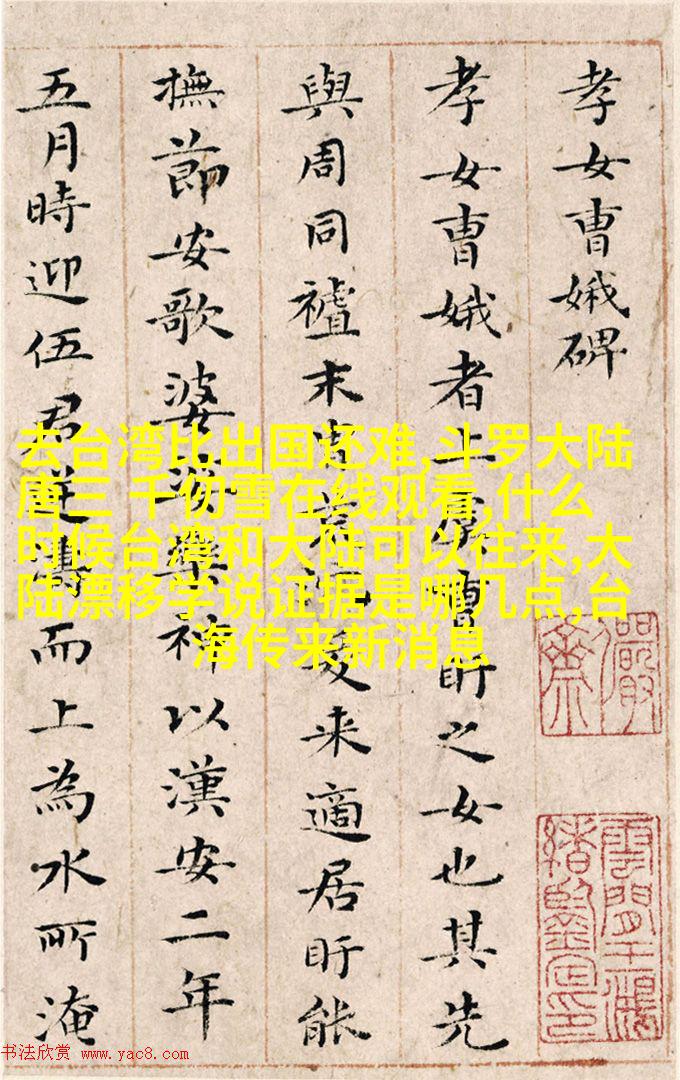 孝女曹娥碑
孝女曹娥者上虞曹盱之女也其先
與周同末胄荒爰来適居盱能
撫節安歌婆娑樂神以漢安二年
五月時迎伍君逆濤而上為水所淹
儼齋
雲間王鴻
緒鑒定印
去台湾比出国还难,斗罗大陆
唐三 千仞雪在线观看,什么
时候台湾和大陆可以往来,大
陆漂移学说证据是哪几点,台
海传来新消息
书法欣赏 www.yac8.com